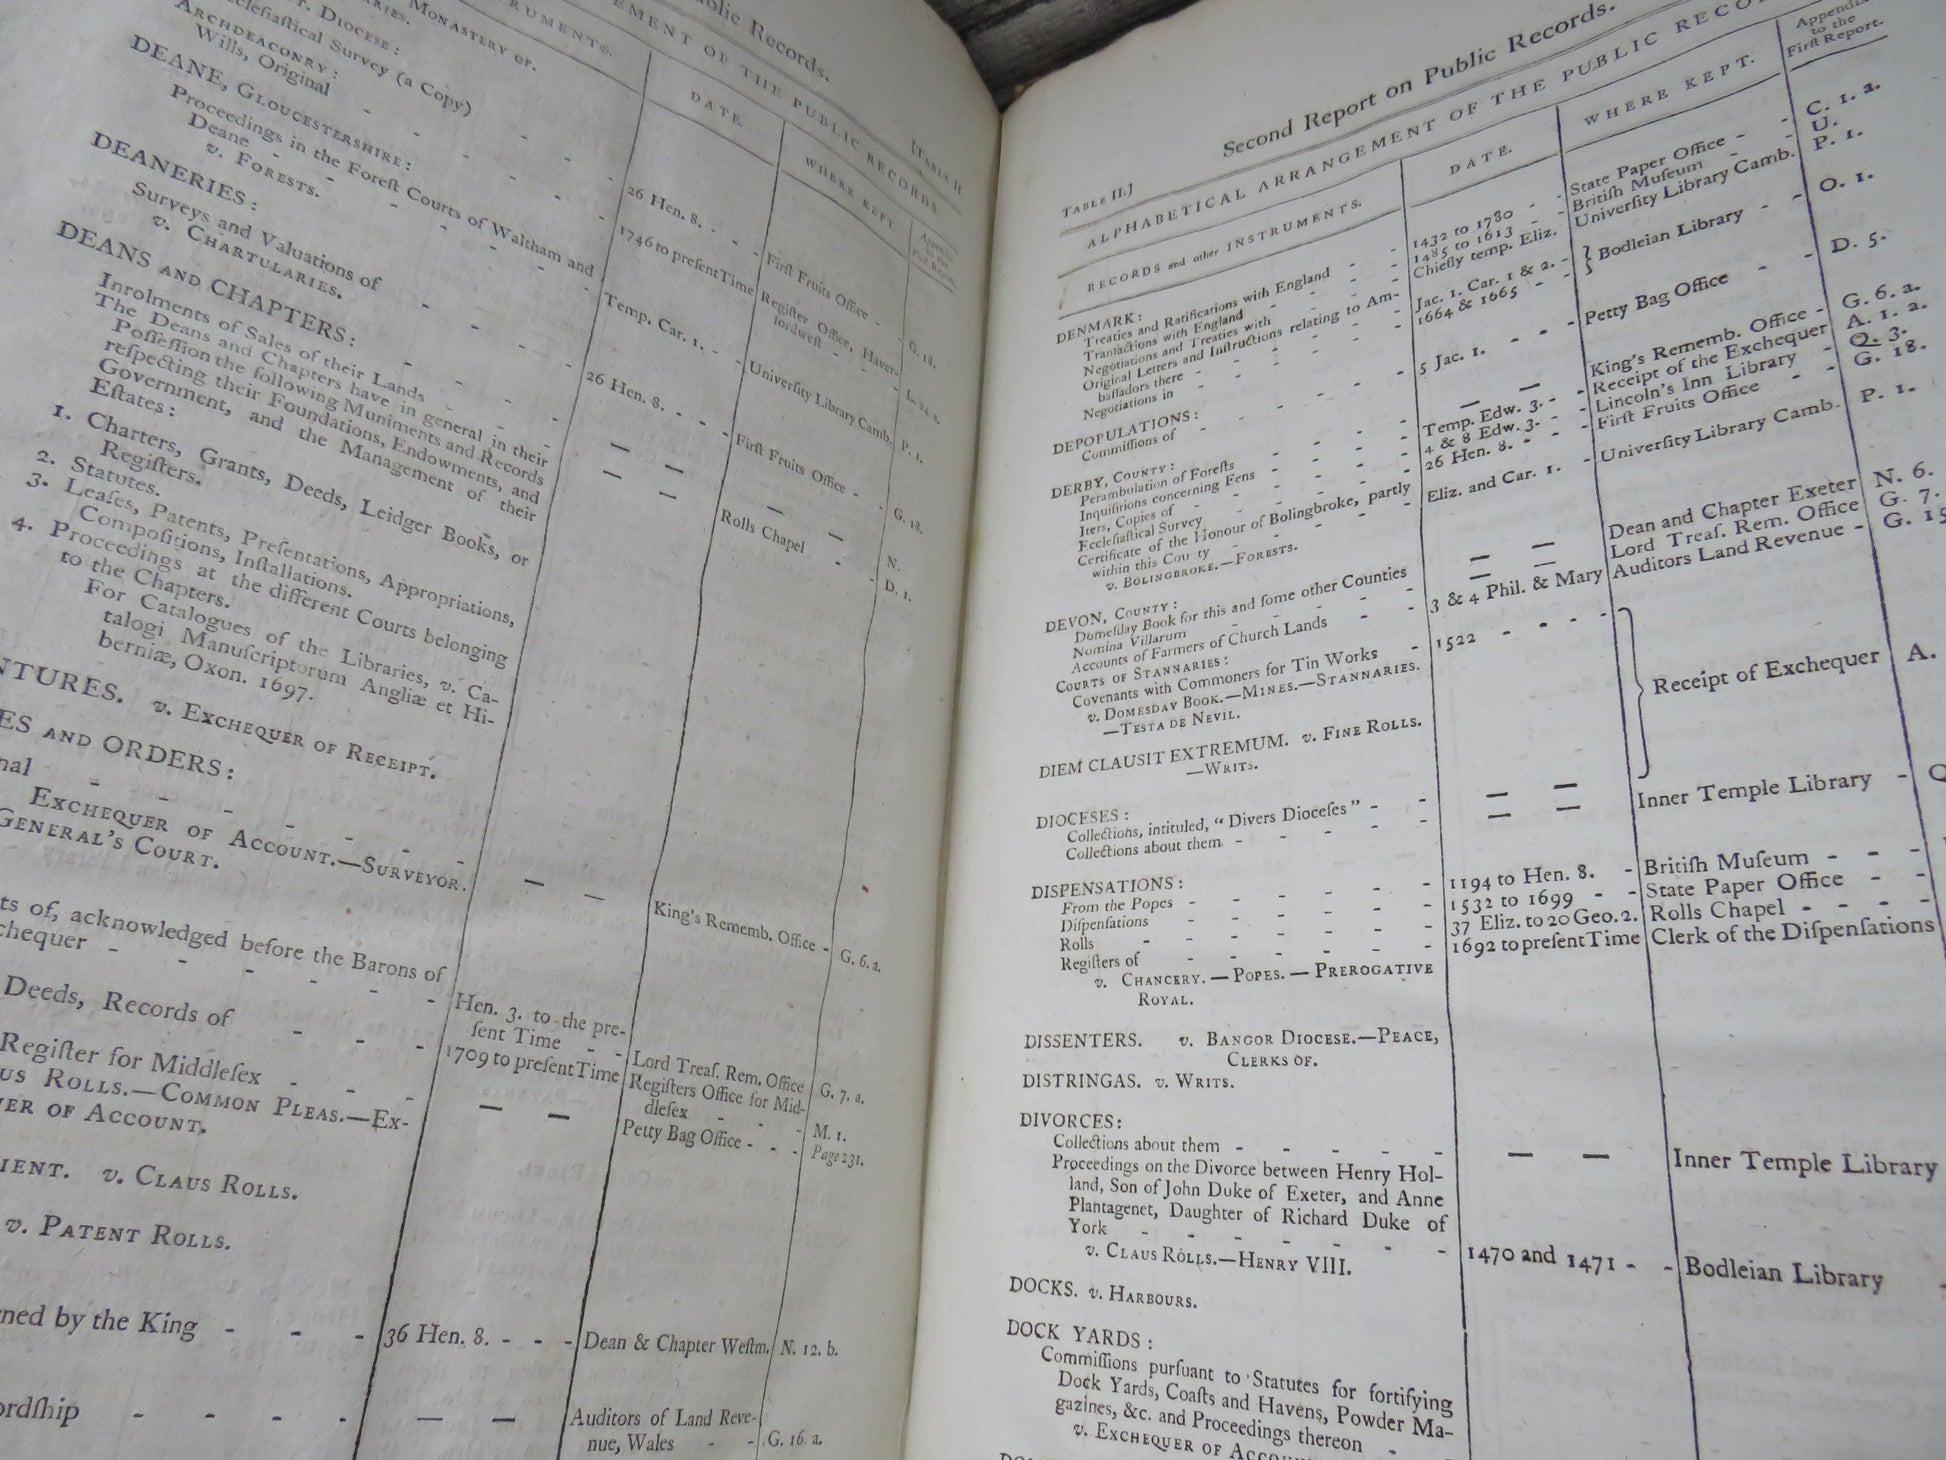 ublic Records.
EMENT OF THE PUBLIC RECORDS. [TABLE II.
TRUMENTS.
DATE.
WHERE KEPT
Appendix to the First Report.
MONASTERY OF.
T. DIOCESE:
cclesiastical Survey (a Copy)
26 Hen. 8. - - - First Fruits Office - G. 18.
ARCHDEACONRY:
Wills, Original - - - 1746 to preſent Time Regiſter Office, Haver-
fordweſt - - L. 24. a.
DEANE, GLOUCESTERSHIRE:
Proceedings in the Foreſt Courts of Waltham and
Deane - - - Temp. Car. 1. - - Univerſity Library Camb. P. 1.
v. FORESTS.
DEANERIES:
Surveys and Valuations of - - - 26 Hen. 8. - - - Firſt Fruits Office - G. 18.
v. CHARTULARIES.
DEANS AND CHAPTERS:
Inrolments of Sales of their Lands - - - Rolls Chapel - - D. 1.
The Deans and Chapters have in general in their
Poſſeſſion the following Muniments and Records
reſpecting their Foundations, Endowments, and
Government, and the Management of their
Eſtates: N.
1. Charters, Grants, Deeds, Leidger Books, or
Regiſters.
2. Statutes.
3. Leaſes, Patents, Preſentations, Appropriations,
Compoſitions, Inſtallations.
4. Proceedings at the different Courts belonging
to the Chapters.
For Catalogues of the Libraries, v. Ca-
talogi Manuſcriptorum Angliæ et Hi-
berniæ, Oxon. 1697.
NTURES. v. EXCHEQUER OF RECEIPT.
ES AND ORDERS:
nal - - - — — King's Rememb. Office - G. 6. a.
EXCHEQUER OF ACCOUNT.—SURVEYOR.
GENERAL'S COURT.
ts of, acknowledged before the Barons of
chequer - - - Hen. 3. to the pre-
ſent Time - - Lord Treaſ. Rem. Office G. 7. a.
Deeds, Records of - - - 1709 to preſent Time Regiſters Office for Mid-
dleſex - - - M. 1.
Regiſter for Middleſex - - - — — Petty Bag Office - - - Page 231.
US ROLLS.—COMMON PLEAS.—EX-
ER OF ACCOUNT.
IENT. v. CLAUS ROLLS.
v. PATENT ROLLS.
ned by the King - - - 36 Hen. 8. - - - Dean & Chapter Weſtm. N. 12. b.
ordſhip - - - - — — Auditors of Land Reve-
nue, Wales - - G. 16. a.
Second Report on Public Records.
TABLE II.]
ALPHABETICAL ARRANGEMENT OF THE PUBLIC RECO
RECORDS and other INSTRUMENTS.
DATE.
WHERE KEPT.
Appendix to the Firſt Report.
DENMARK:
Treaties and Ratifications with England - - 1432 to 1780 - - State Paper Office - - C. 1. a.
Tranſactions with England - - 1485 to 1613 - - Britiſh Muſeum - - U.
Negotiations and Treaties with - - Chiefly temp. Eliz. - Univerſity Library Camb. P. 1.
Original Letters and Inſtructions relating to Am-
baſſadors there - - - Jac. 1. Car. 1 & 2. - } Bodleian Library - - O. 1.
Negotiations in - - - 1664 & 1665 - -
DEPOPULATIONS:
Commiſſions of - - - 5 Jac. 1. - - - Petty Bag Office - - D. 5.
DERBY, COUNTY:
Perambulation of Foreſts - - - — — King's Rememb. Office - G. 6. a.
Inquiſitions concerning Fens - - - Temp. Edw. 3. - - Receipt of the Exchequer A. 1. a.
Iters, Copies of - - - 4 & 8 Edw. 3. - - Lincoln's Inn Library - Q. 3.
Eccleſiaſtical Survey - - - 26 Hen. 8. - - - Firſt Fruits Office - - G. 18.
Certificate of the Honour of Bolingbroke, partly
within this County - - - Eliz. and Car. 1. - Univerſity Library Camb. P. 1.
v. BOLINGBROKE.—FORESTS.
DEVON, COUNTY:
Domeſday Book for this and ſome other Counties — — Dean and Chapter Exeter N. 6.
Nomina Villarum - - - — — Lord Treaſ. Rem. Office G. 7.
Accounts of Farmers of Church Lands - - 3 & 4 Phil. & Mary Auditors Land Revenue - G. 15
COURTS OF STANNARIES:
Covenants with Commoners for Tin Works - 1522 - - - - Receipt of Exchequer A.
v. DOMESDAY BOOK.—MINES.—STANNARIES.
—TESTA DE NEVIL.
DIEM CLAUSIT EXTREMUM. v. FINE ROLLS.
—WRITS.
DIOCESES:
Collections, intituled, "Divers Dioceſes" - - — — Inner Temple Library - Q
Collections about them - - - — —
DISPENSATIONS:
From the Popes - - - 1194 to Hen. 8. - Britiſh Muſeum - - -
Diſpenſations - - - 1532 to 1699 - - State Paper Office - -
Rolls - - - 37 Eliz. to 20 Geo. 2. Rolls Chapel - - - -
Regiſters of - - - 1692 to preſent Time Clerk of the Diſpenſations
v. CHANCERY.—POPES.—PREROGATIVE
ROYAL.
DISSENTERS. v. BANGOR DIOCESE.—PEACE,
CLERKS OF.
DISTRINGAS. v. WRITS.
DIVORCES:
Collections about them - - - — — Inner Temple Library
Proceedings on the Divorce between Henry Hol-
land, Son of John Duke of Exeter, and Anne
Plantagenet, Daughter of Richard Duke of
York - - - 1470 and 1471 - - Bodleian Library -
v. CLAUS ROLLS.—HENRY VIII.
DOCKS. v. HARBOURS.
DOCK YARDS:
Commiſſions purſuant to Statutes for fortifying
Dock Yards, Coaſts and Havens, Powder Ma-
gazines, &c. and Proceedings thereon -
v. EXCHEQUER OF ACCOU